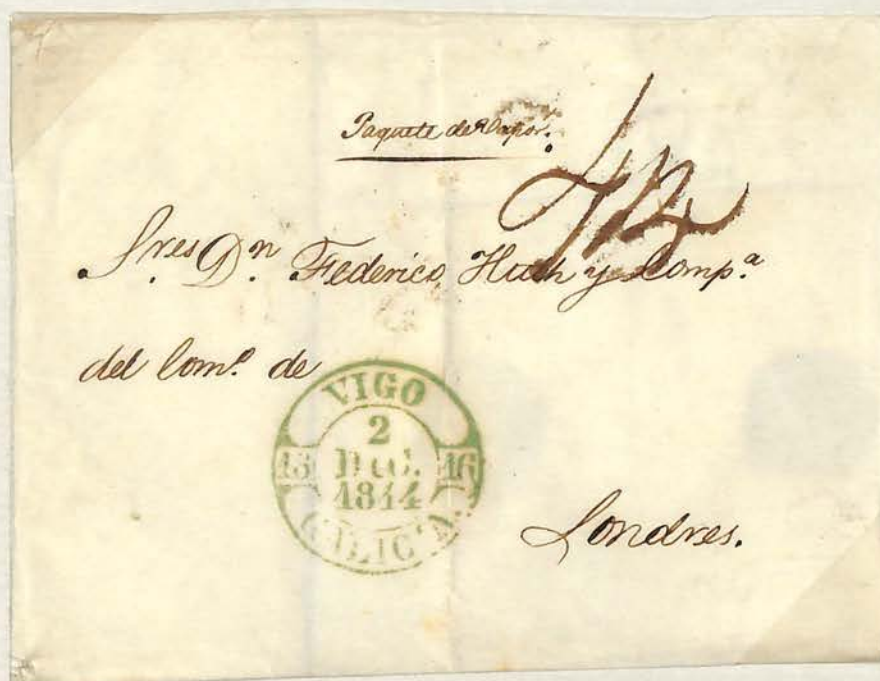 Paquete de Vapor.
Sres. Dn. Federico Huth y Comp.a
del Com.o de
VIGO
2
DIC.
1844
GALICIA.
Londres.